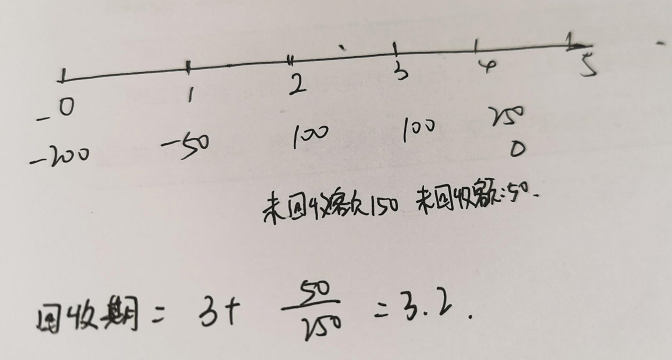 0 1 2 3 4 5
-200 -50 100 100 250
0
未回收额150 未回收额:50.
回收期 = 3+ 50/250 = 3.2.